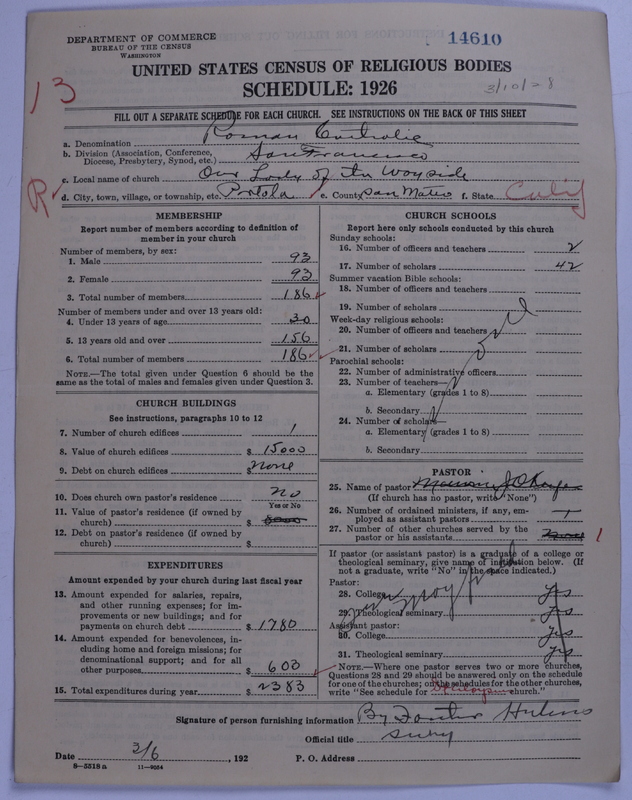 DEPARTMENT OF COMMERCE
BUREAU OF THE CENSUS
WASHINGTON
14610
UNITED STATES CENSUS OF RELIGIOUS BODIES
SCHEDULE: 1926
13
3/10/28
FILL OUT A SEPARATE SCHEDULE FOR EACH CHURCH. SEE INSTRUCTIONS ON THE BACK OF THIS SHEET
a. Denomination Roman Catholic
b. Division (Association, Conference, Diocese, Presbytery, Synod, etc.) San Francisco
c. Local name of church Our Lady of the Wayside
R
d. City, town, village, or township, etc. Portola e. County San Mateo f. State Calif
MEMBERSHIP
Report number of members according to definition of
member in your church
Number of members, by sex:
1. Male 93
2. Female 93
3. Total number of members 186
Number of members under and over 13 years old:
4. Under 13 years of age 30
5. 13 years old and over 156
6. Total number of members 186
NOTE.—The total given under Question 6 should be
same as the total of males and females given under Question 3.
CHURCH BUILDINGS
See instructions, paragraphs 10 to 12
7. Number of church edifices 1
8. Value of church edifices $ 15000
9. Debt on church edifices $ none
10. Does church own pastor's residence no
Yes or No
11. Value of pastor's residence (if owned by
church) $
12. Debt on pastor's residence (if owned by
church) $
EXPENDITURES
Amount expended by your church during last fiscal year
13. Amount expended for salaries, repairs,
and other running expenses; for im-
provements or new buildings; and for
payments on church debt $ 1780
14. Amount expended for benevolences, in-
cluding home and foreign missions; for
denominational support; and for all
other purposes $ 603
15. Total expenditures during year $ 2383
CHURCH SCHOOLS
Report here only schools conducted by this church
Sunday schools:
16. Number of officers and teachers 2
17. Number of scholars 42
Summer vacation Bible schools:
18. Number of officers and teachers
19. Number of scholars
Week-day religious schools:
20. Number of officers and teachers
21. Number of scholars
Parochial schools:
22. Number of administrative officers
23. Number of teachers—
a. Elementary (grades 1 to 8)
b. Secondary
24. Number of scholars—
a. Elementary (grades 1 to 8)
b. Secondary
PASTOR
25. Name of pastor
(If church has no pastor, write "None")
26. Number of ordained ministers, if any, em-
ployed as assistant pastors 1
27. Number of other churches served by the
pastor or his assistants 1
If pastor (or assistant pastor) is a graduate of a college or
theological seminary, give name of institution below. (If
not a graduate, write "No" in the space indicated.)
Pastor:
28. College yes
29. Theological seminary yes
Assistant pastor:
30. College yes
31. Theological seminary yes
NOTE.—Where one pastor serves two or more churches,
Questions 28 and 29 should be answered only on the schedule
for one of the churches; on the schedules for the other churches,
write "See schedule for church."
Signature of person furnishing information By
Official title
Date 3/6, 192 P. O. Address
8-5518a 11-9054